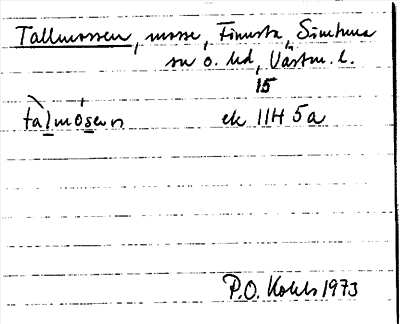 Tallmossen, mosse, Finnsta, Simtuna
sn ö. hd, Västm. l.
15
tàlmósen ek 11H 5a
P.O. Kohls 1973